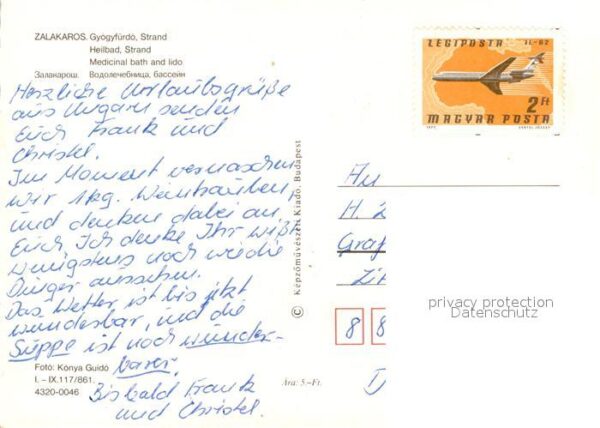 ZALAKAROS. Gyógyfürdő, Strand
Heilbad, Strand
Medicinal bath and lido
Залакарош. Водолечебница, бассейн
Herzliche Urlaubsgrüße
aus Ungarn senden
Euch Frank und
Christel.
Im Moment vernaschen
wir 1kg. Weintrauben,
und denken dabei an
Euch. Ich denke Ihr wißt
wenigstens noch wie die
Dinger aussehen.
Das Wetter ist bis jetzt
wunderbar, und die
Suppe ist noch wunder-
barer.
Bis bald Frank
und Christel.
Fotó: Kónya Guidó
I. – IX.117/861.
4320-0046
Ára: 5.-Ft.
© Képzőművészeti Kiadó, Budapest
LÉGIPOSTA IL-62
2 Ft
MAGYAR POSTA
An
H. 2
Graf
Zit
8 8
privacy protection
Datenschutz